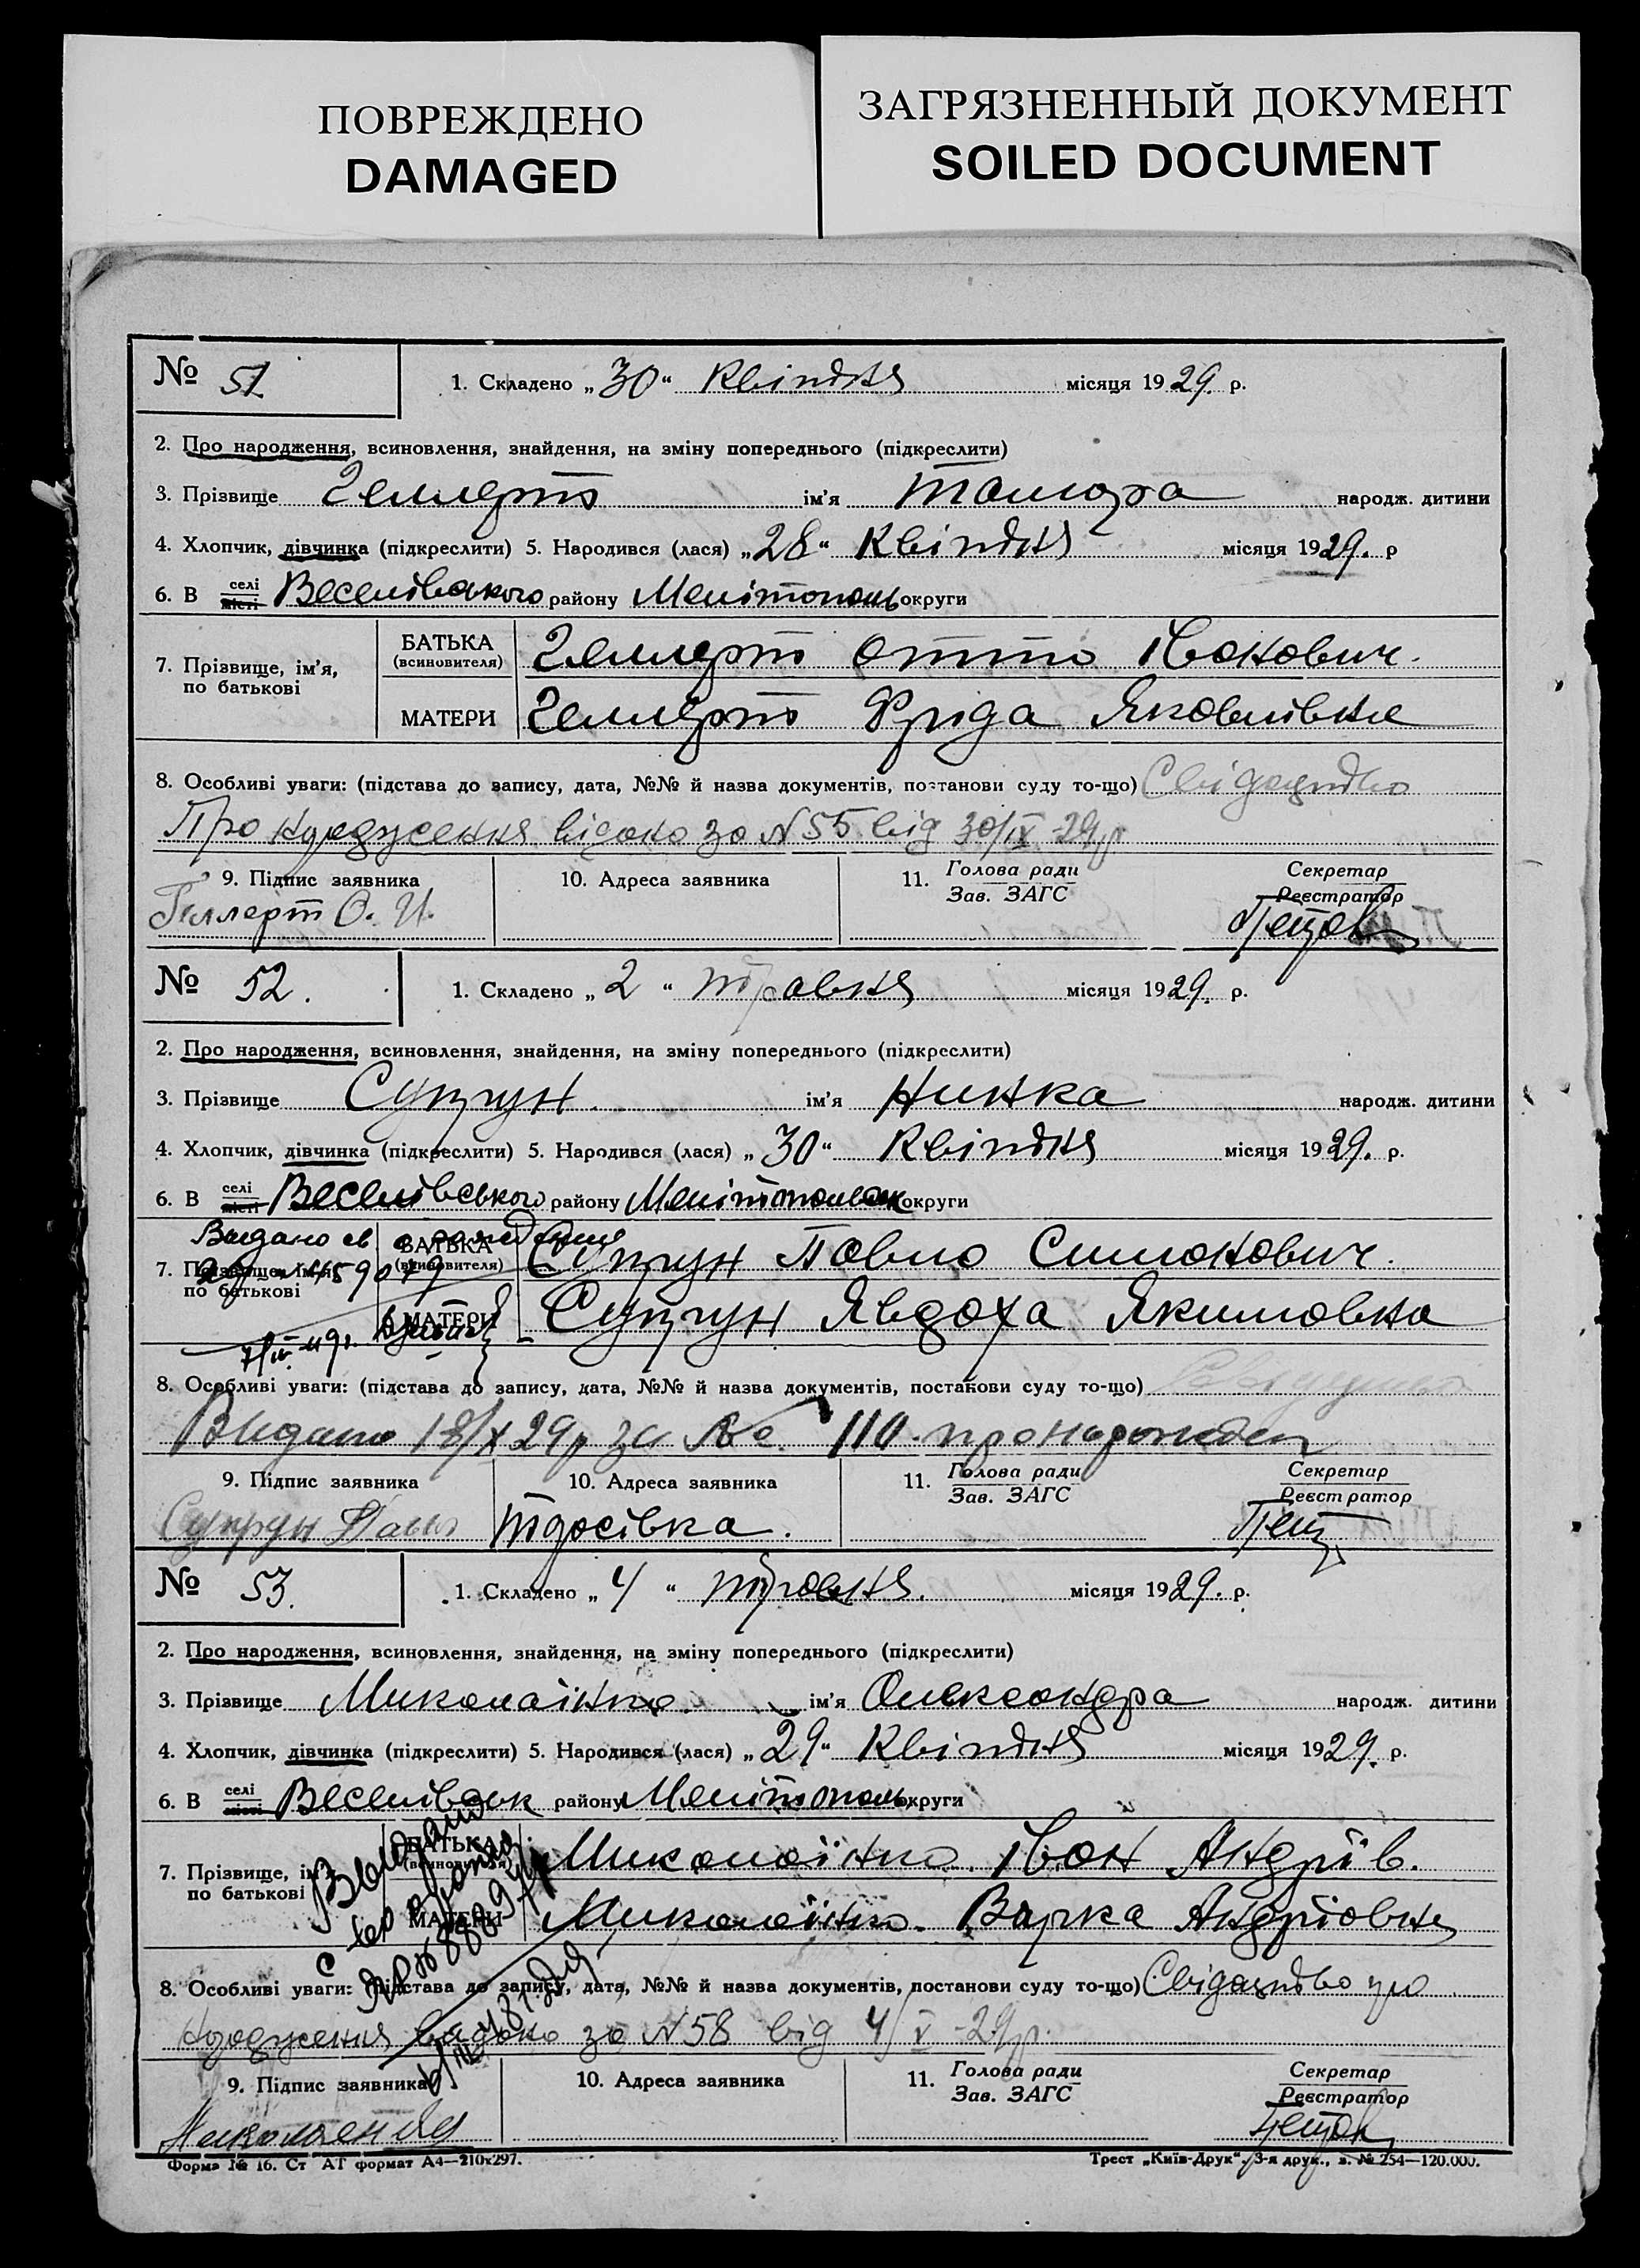 ПОВРЕЖДЕНО
DAMAGED
ЗАГРЯЗНЕННЫЙ ДОКУМЕНТ
SOILED DOCUMENT
№ 51
1. Складено „30“ Квітня місяця 1929. р.
2. Про народження, всиновлення, знайдення, на зміну попереднього (підкреслити)
3. Прізвище Геллерт ім'я Тамара народж. дитини
4. Хлопчик, дівчинка (підкреслити) 5. Народився (лася) „28“ Квітня місяця 1929. р
6. В селі місті Веселівського району Мелітополь округи
7. Прізвище, ім'я, по батькові
БАТЬКА (всиновителя) Геллерт Отто Іванович.
МАТЕРИ Геллерт Фріда Яковлівна
8. Особливі уваги: (підстава до запису, дата, №№ й назва документів, постанови суду то-що) Свідоцтво
Про народження видано за N 55 від 30/IV-29р
9. Підпис заявника
10. Адреса заявника
11. Голова ради Зав. ЗАГС
Секретар Реєстратор
Геллерт О. И.
№ 52.
1. Складено „2“ травня місяця 1929. р.
2. Про народження, всиновлення, знайдення, на зміну попереднього (підкреслити)
3. Прізвище Супрун. ім'я Нинка народж. дитини
4. Хлопчик, дівчинка (підкреслити) 5. Народився (лася) „30“ Квітня місяця 1929. р.
6. В селі місті Веселівського району округи
7. Прізвище, ім'я, по батькові
БАТЬКА (всиновителя) Супрун Павло Симонович.
МАТЕРИ Супрун Явдоха Якимовна
8. Особливі уваги: (підстава до запису, дата, №№ й назва документів, постанови суду то-що)
Видано 18/X 29р за № 110.
9. Підпис заявника
10. Адреса заявника
11. Голова ради Зав. ЗАГС
Секретар Реєстратор
Супрун
№ 53.
1. Складено „4“ травня. місяця 1929. р.
2. Про народження, всиновлення, знайдення, на зміну попереднього (підкреслити)
3. Прізвище ім'я Олександра народж. дитини
4. Хлопчик, дівчинка (підкреслити) 5. Народився (лася) „29“ Квітня місяця 1929. р.
6. В селі місті Веселівськ району Мелітополь округи
7. Прізвище, ім'я, по батькові
БАТЬКА (всиновителя) Іван Андрів.
МАТЕРИ Варка Андріовна
8. Особливі уваги: (підстава до запису, дата, №№ й назва документів, постанови суду то-що) Свідоцтво про
народження видано за N 58 від 4/V-29р.
9. Підпис заявника
10. Адреса заявника
11. Голова ради Зав. ЗАГС
Секретар Реєстратор
Форма № 16. Ст АТ формат А4—210х297.
Трест „Київ-Друк“, 3-я друк., з. № 254—120.000.